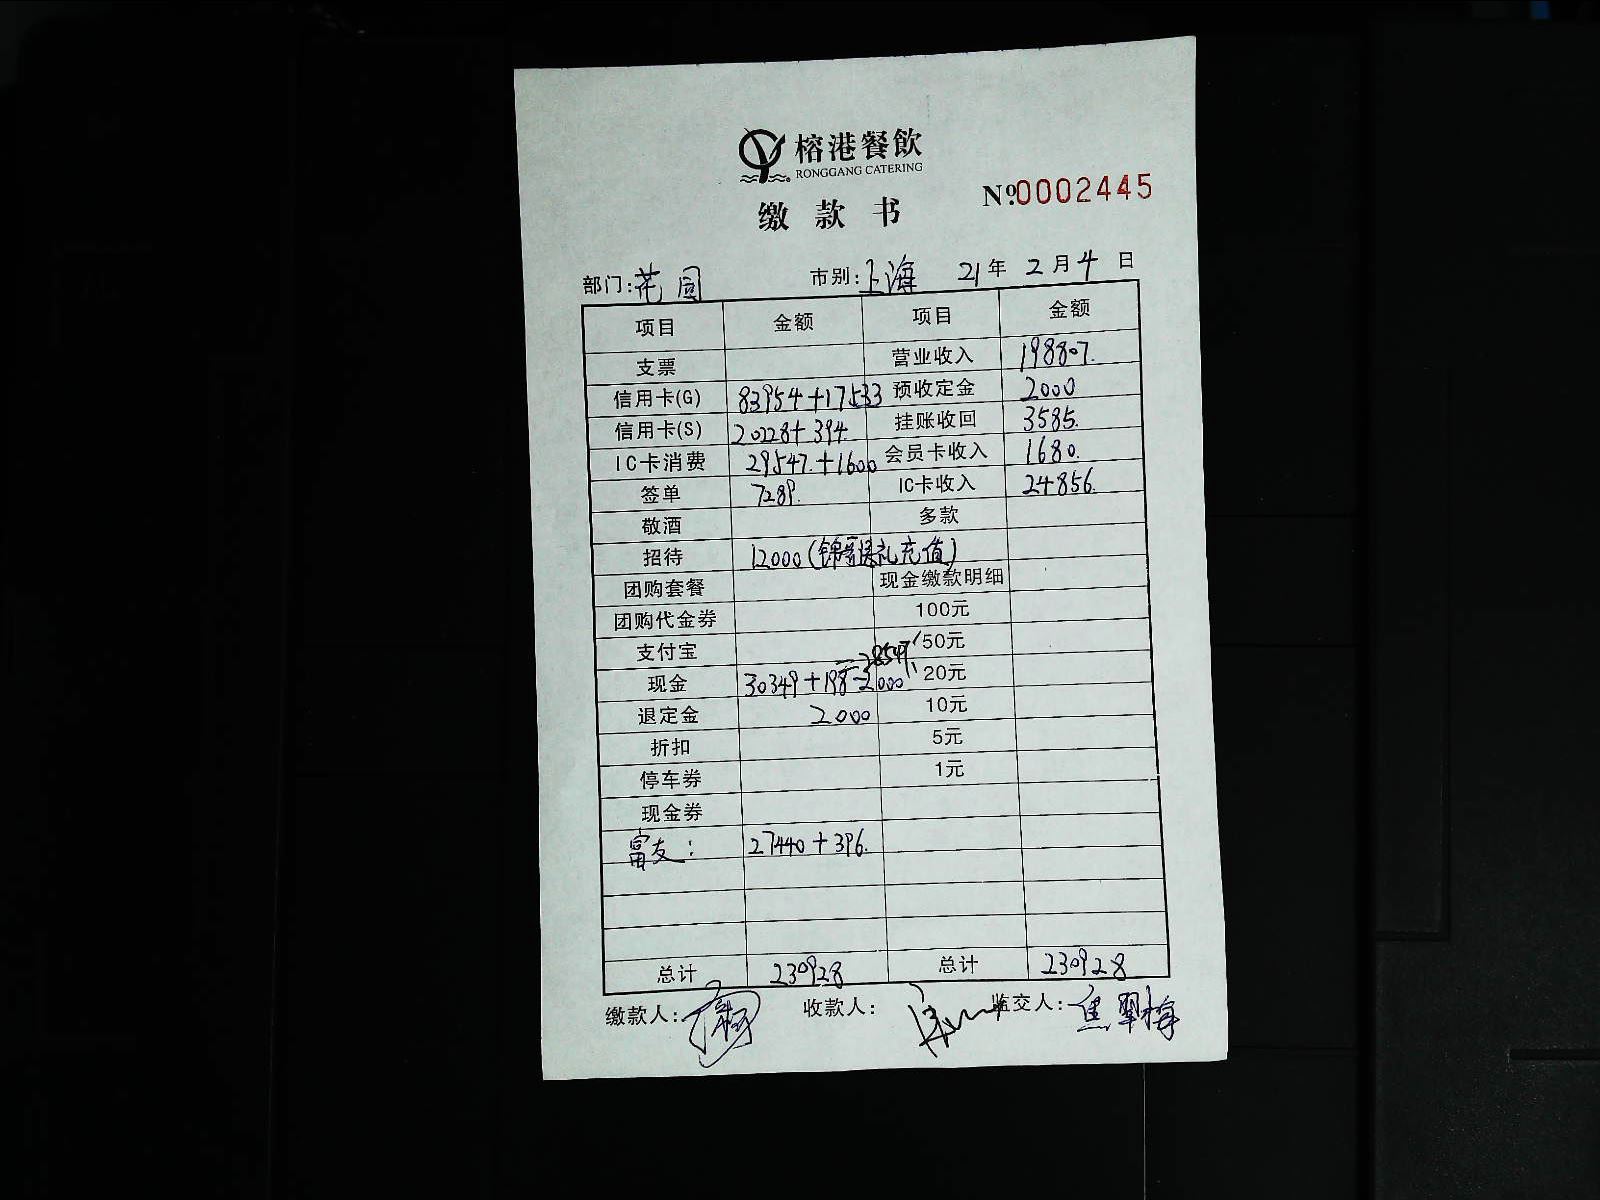 榕港餐飲
RONGGANG CATERING
No.0002445
缴款书
部门:花园 市别:上海 21年2月4日
项目 金额 项目 金额
支票 营业收入 198807.
信用卡(G) 83954+17533 预收定金 2000
信用卡(S) 20228+394 挂账收回 3585.
IC卡消费 29547.+1600 会员卡收入 1680.
签单 7289. IC卡收入 24856.
敬酒 多款
招待 12000(充值)
团购套餐 现金缴款明细
团购代金券 100元
支付宝 50元
=28547.
现金 30349+198-2000 20元
退定金 2000 10元
折扣 5元
停车券 1元
现金券
富友: 27440+396.
总计 230928 总计 230928
缴款人: 收款人: 监交人:焦翠梅